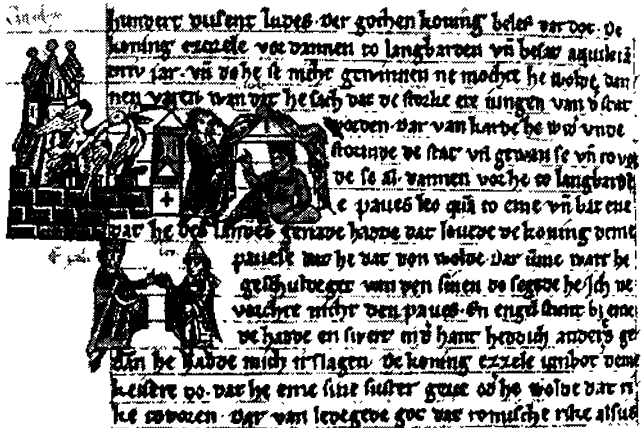 hundert dusent ludes. der gothen koning beles dar dot. De
koning ezzele vor dannen to langbarden vn̄ besat aquileiā
jar. vn̄ do he se nicht gewinnen ne mochte he wolde dan
nen varen wan dat he sach dat de storke ere iungen van d' stat
voeden. dar van karde he wid' unde
stormde de stat vn̄ gewan se vn̄ rovde
de se al. dannen vor he to langbarde
e paves leo quā to eme vn̄ bat eme
dat he des landes genade hadde dat lovede de koning deme
pavese dat he dat don wolde. Dar ūme wart he
geschuldeget van den sinen do segede he. Ich ne
vorchte nicht den paves. en engel stunt bi eme
de hadde en swert in d' hant hedde ich anders ge
dān he hadde mich irslagen. De koning ezzele unbot deme
keisere do. dat he eme sine suster geve od' he wolde dat ri
ke tovoren. Dar van ledegede got dat romische rike alsus